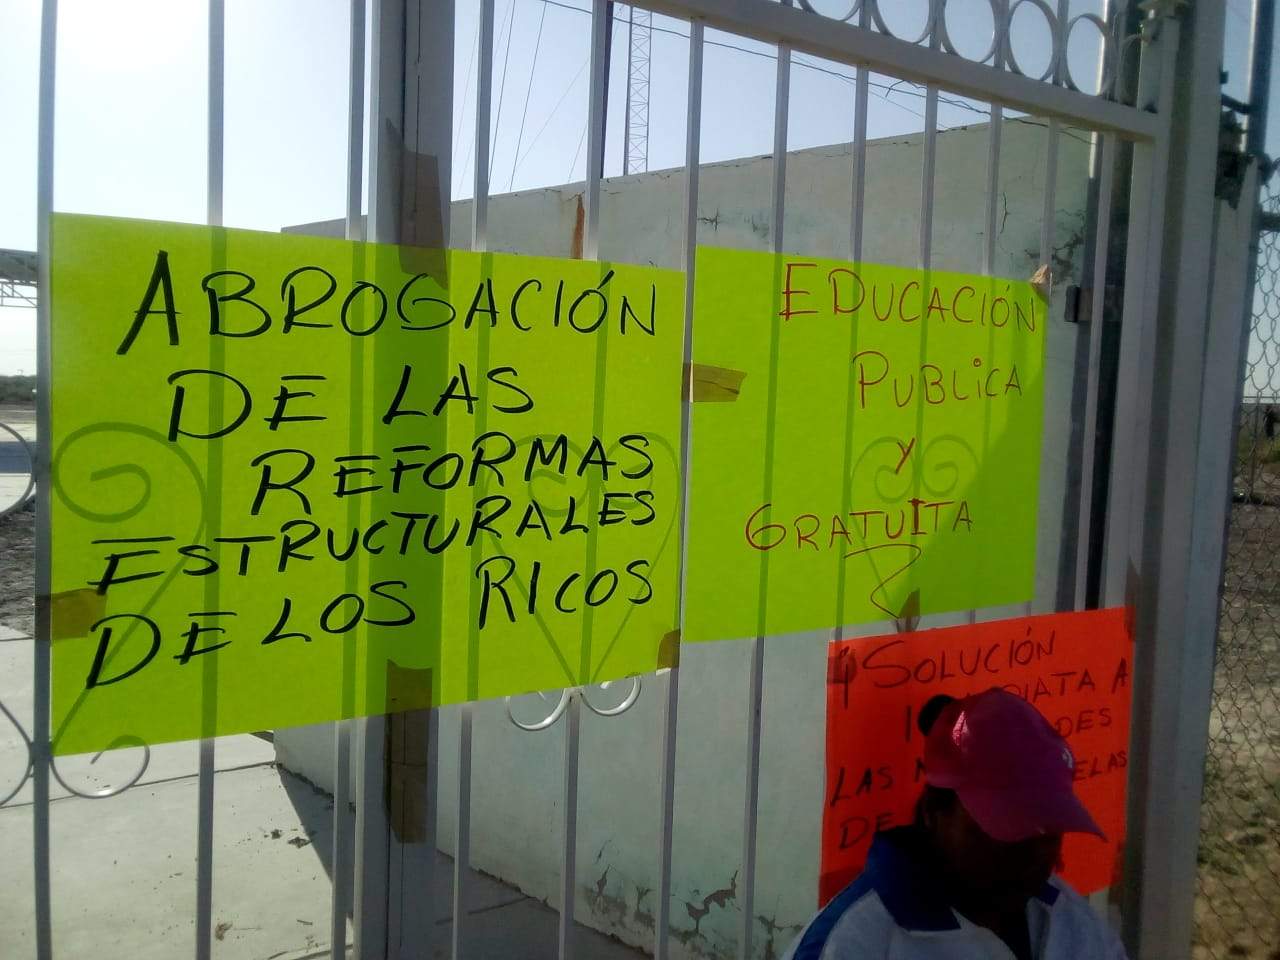 ABROGACIÓN
DE LAS
REFORMAS
ESTRUCTURALES
DE LOS RICOS
EDUCACIÓN
PUBLICA
Y
GRATUITA
SOLUCIÓN
A
LAS
DE